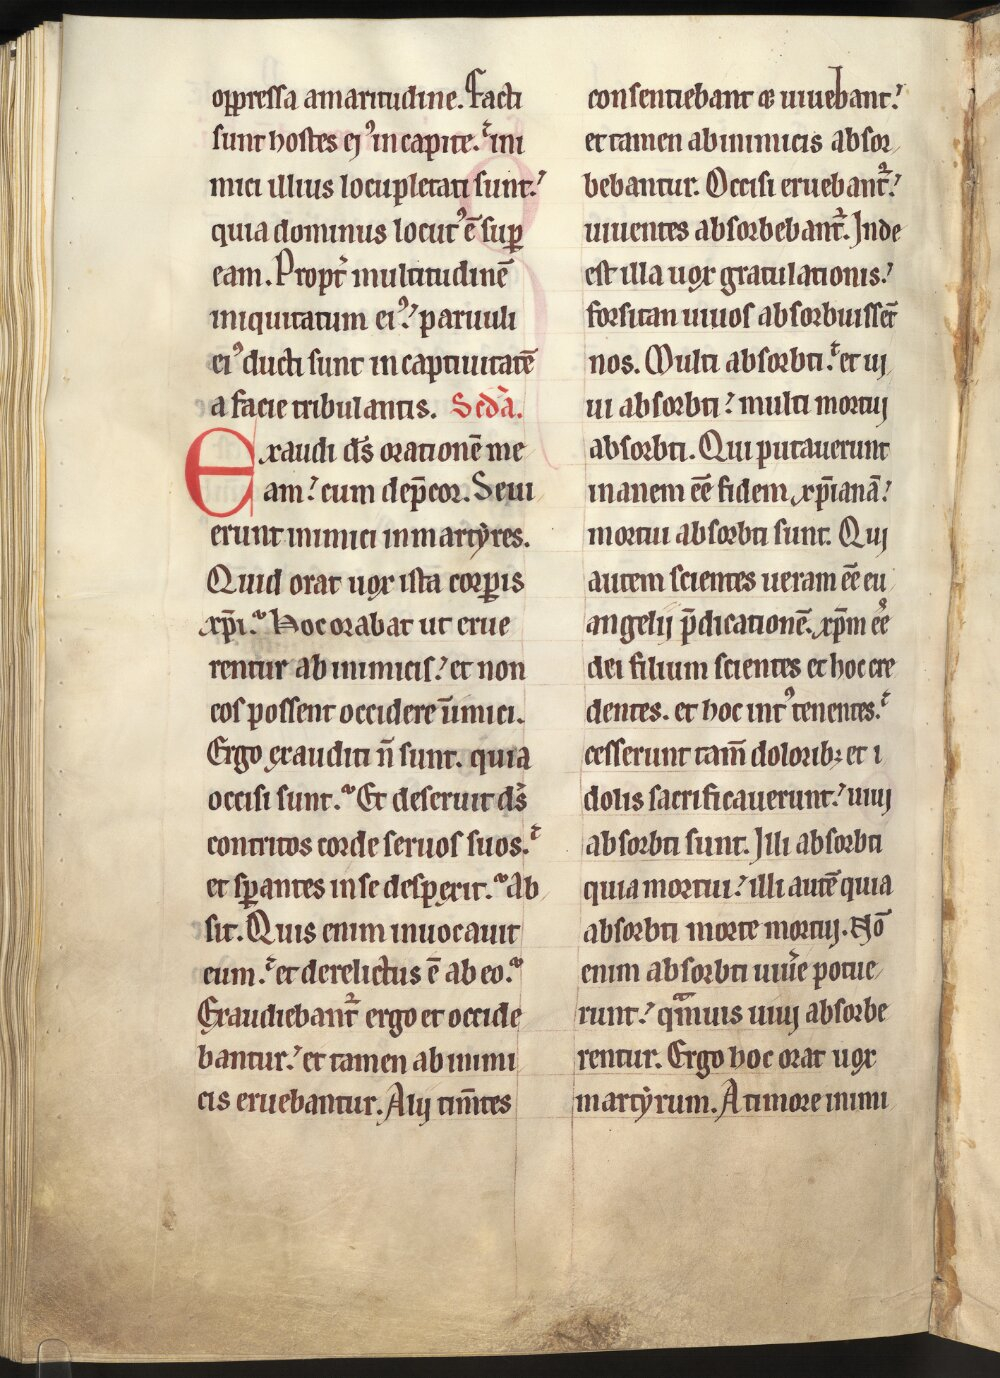 oppressa amaritudine. Facti
sunt hostes ei⁹ in capite. ini
mici illius locupletati sunt.
quia dominus locut⁹ ē sup̄
eam. Propt̄ multitudinē
iniquitatum ei⁹ paruuli
ei⁹ ducti sunt in captiuitatē
a facie tribulantis. Sc̄dā.
Exaudi ds̄ orationē me
am cum dep̄cor. Seui
erunt inimici in martẏres.
Quid orat uox ista corꝑis
xp̄i. Hoc orabat ut erue
rentur ab inimicis et non
eos possent occidere īnimici.
Ergo exauditi n̄ sunt. quia
occisi sunt. Et deseruit ds̄
contritos corde seruos suos.
et sꝑantes in se despexit. Ab
sit. Quis enim inuocauit
eum. et derelictus ē ab eo.
Exaudiebant᷑ ergo et occide
bantur. et tamen ab inimi
cis eruebantur. Alij tim̄tes
consentiebant & uiuebant.
et tamen ab inimicis absor
bebantur. Occisi eruebant᷑.
uiuentes absorbebant᷑. Inde
est illa uox gratulationis.
forsitan uiuos absorbuissēt
nos. Multi absorbti. et ui
ui absorbti multi mortui
absorbti. Qui putauerunt
inanem eē fidem xp̄ianā
mortui absorbti sunt. Qui
autem scientes ueram eē eu
angelij p̄dicationē. xp̄m eē
dei filium scientes et hoc cre
dentes. et hoc int⁹ tenentes.
cesserunt tam̄ doloribꝫ et i
dolis sacrificauerunt. uiui
absorbti sunt. Illi absorbti
quia mortui illi autē quia
absorbti morte mortui. Nō
enim absorbti uiue potue
runt. qᵃmuis uiui absorbe
rentur. Ergo hoc orat uox
martẏrum. A timore inimi